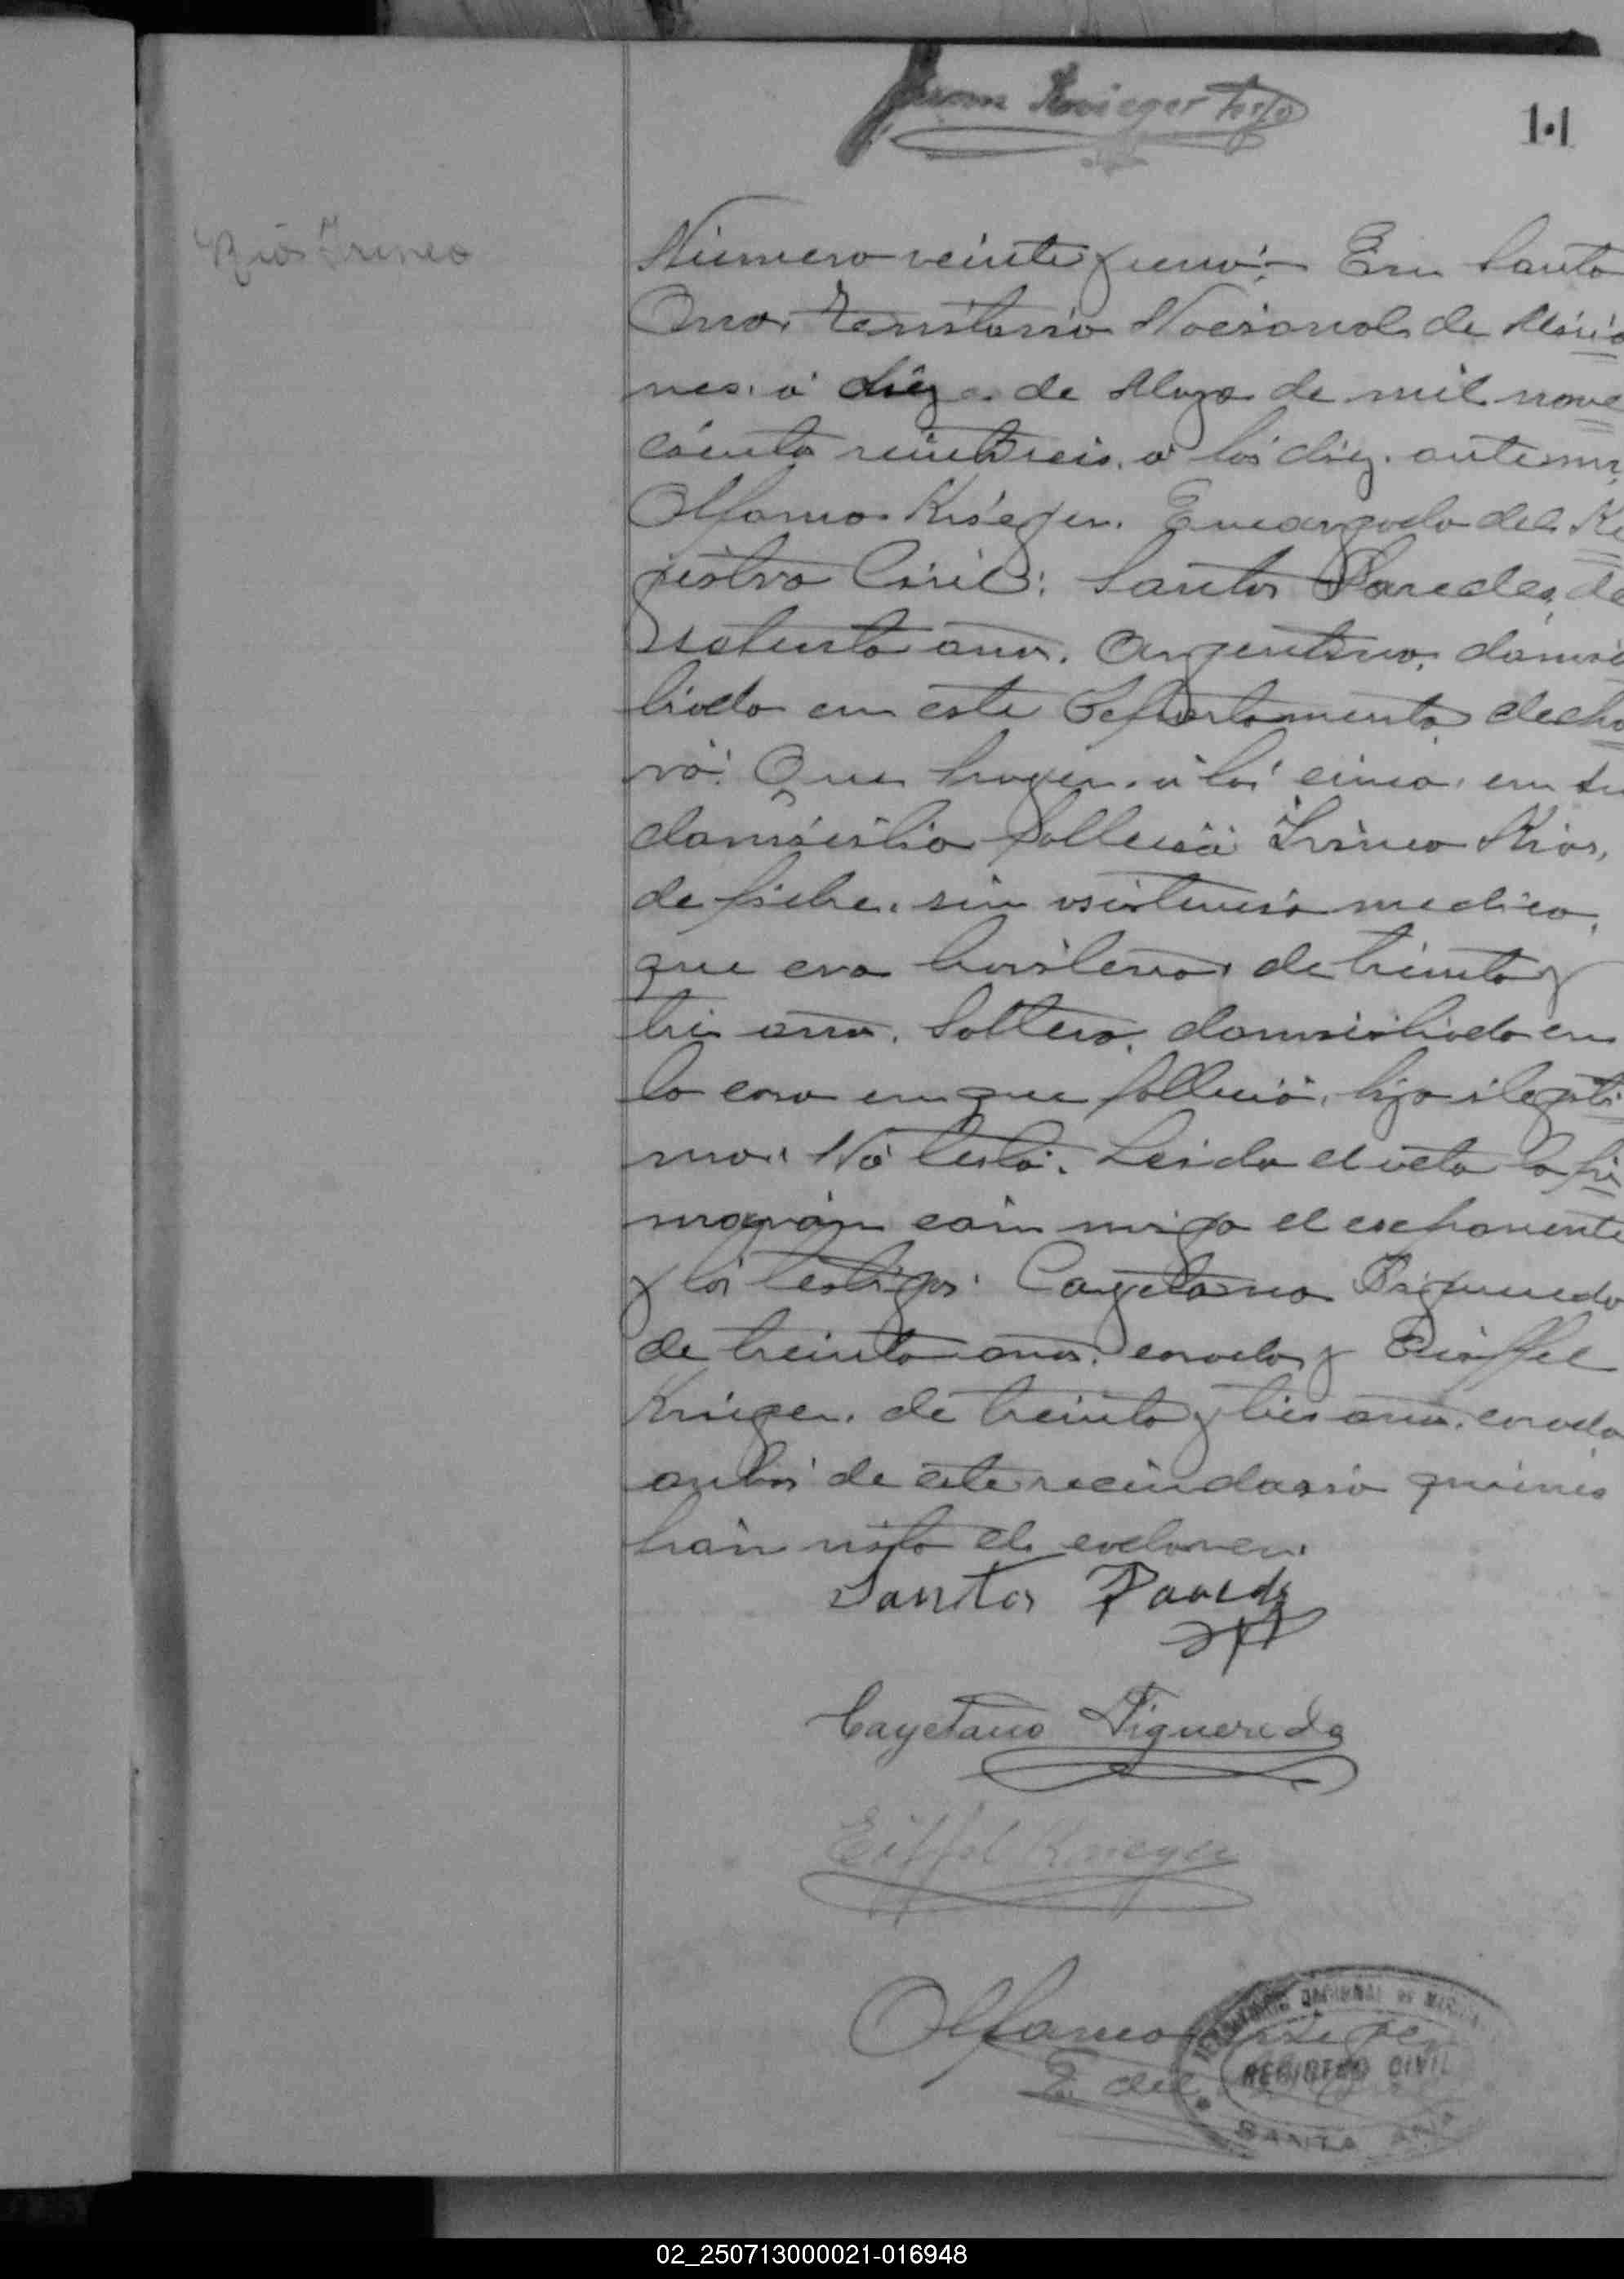 Krieger testo
11
Rios Irineo
Número veinte y uno: En Santa
Ana, Territorio Nacional de Misio
nes, a diez de Mayo de mil nove
cientos veintiseis, a las diez, ante mi,
Olfanio Krieger, Encargado del Re
gistro Civil: Santos Paredes, de
setenta años, Argentino, domici
liado en este Departamento, decla
ró: Que hayer, a las cinco, en su
domicilio falleció Irineo Rios,
de fiebre, sin asistencia medica,
que era brasilero, de treinta y
tres años, soltero, domiciliado en
la casa en que falleció, hijo ilegiti
mo. No testó. Leida el acta la fir
maron con migo el exponente
y los testigos: Cayetano Figueredo
de treinta años, casado y Eiffel
Krieger, de treinta y tres años, casado
ambos de este vecindario quienes
han visto el cadaver.
Santos Paredes
Cayetano Figueredo
Eiffel Krieger
Olfanio Krieger
E. del
TERRITORIO NACIONAL DE MISIONES
REGISTRO CIVIL
SANTA ANA
02_250713000021-016948